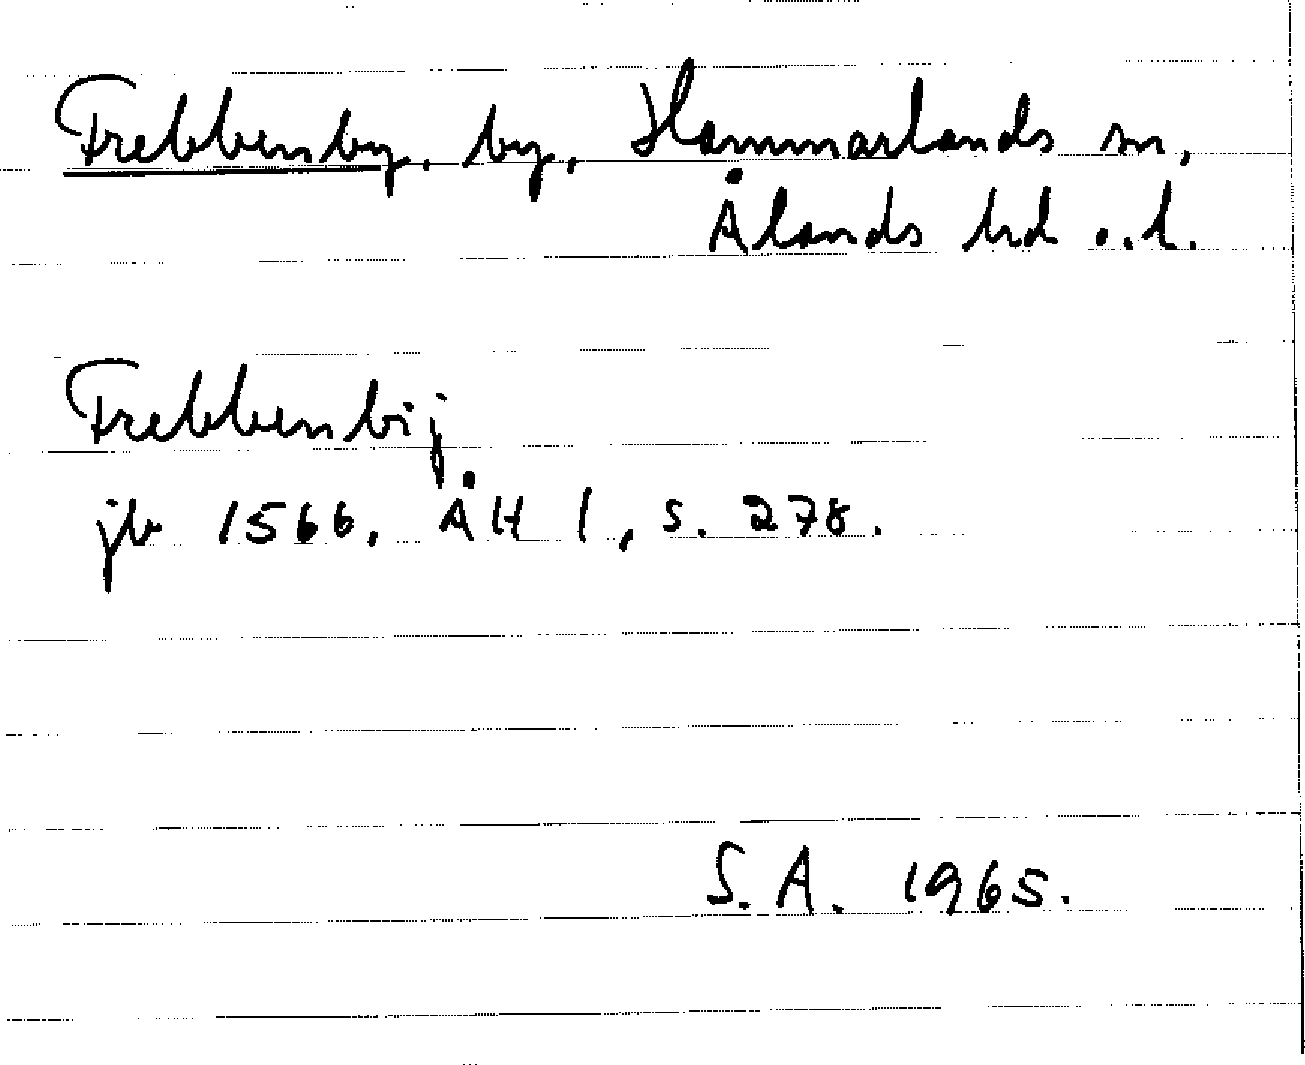 Frebbenby, by, Hammarlands sn,
Ålands hd o. l.
Frebbenbij
jb 1566. ÅH 1, s. 278.
S. A. 1965.